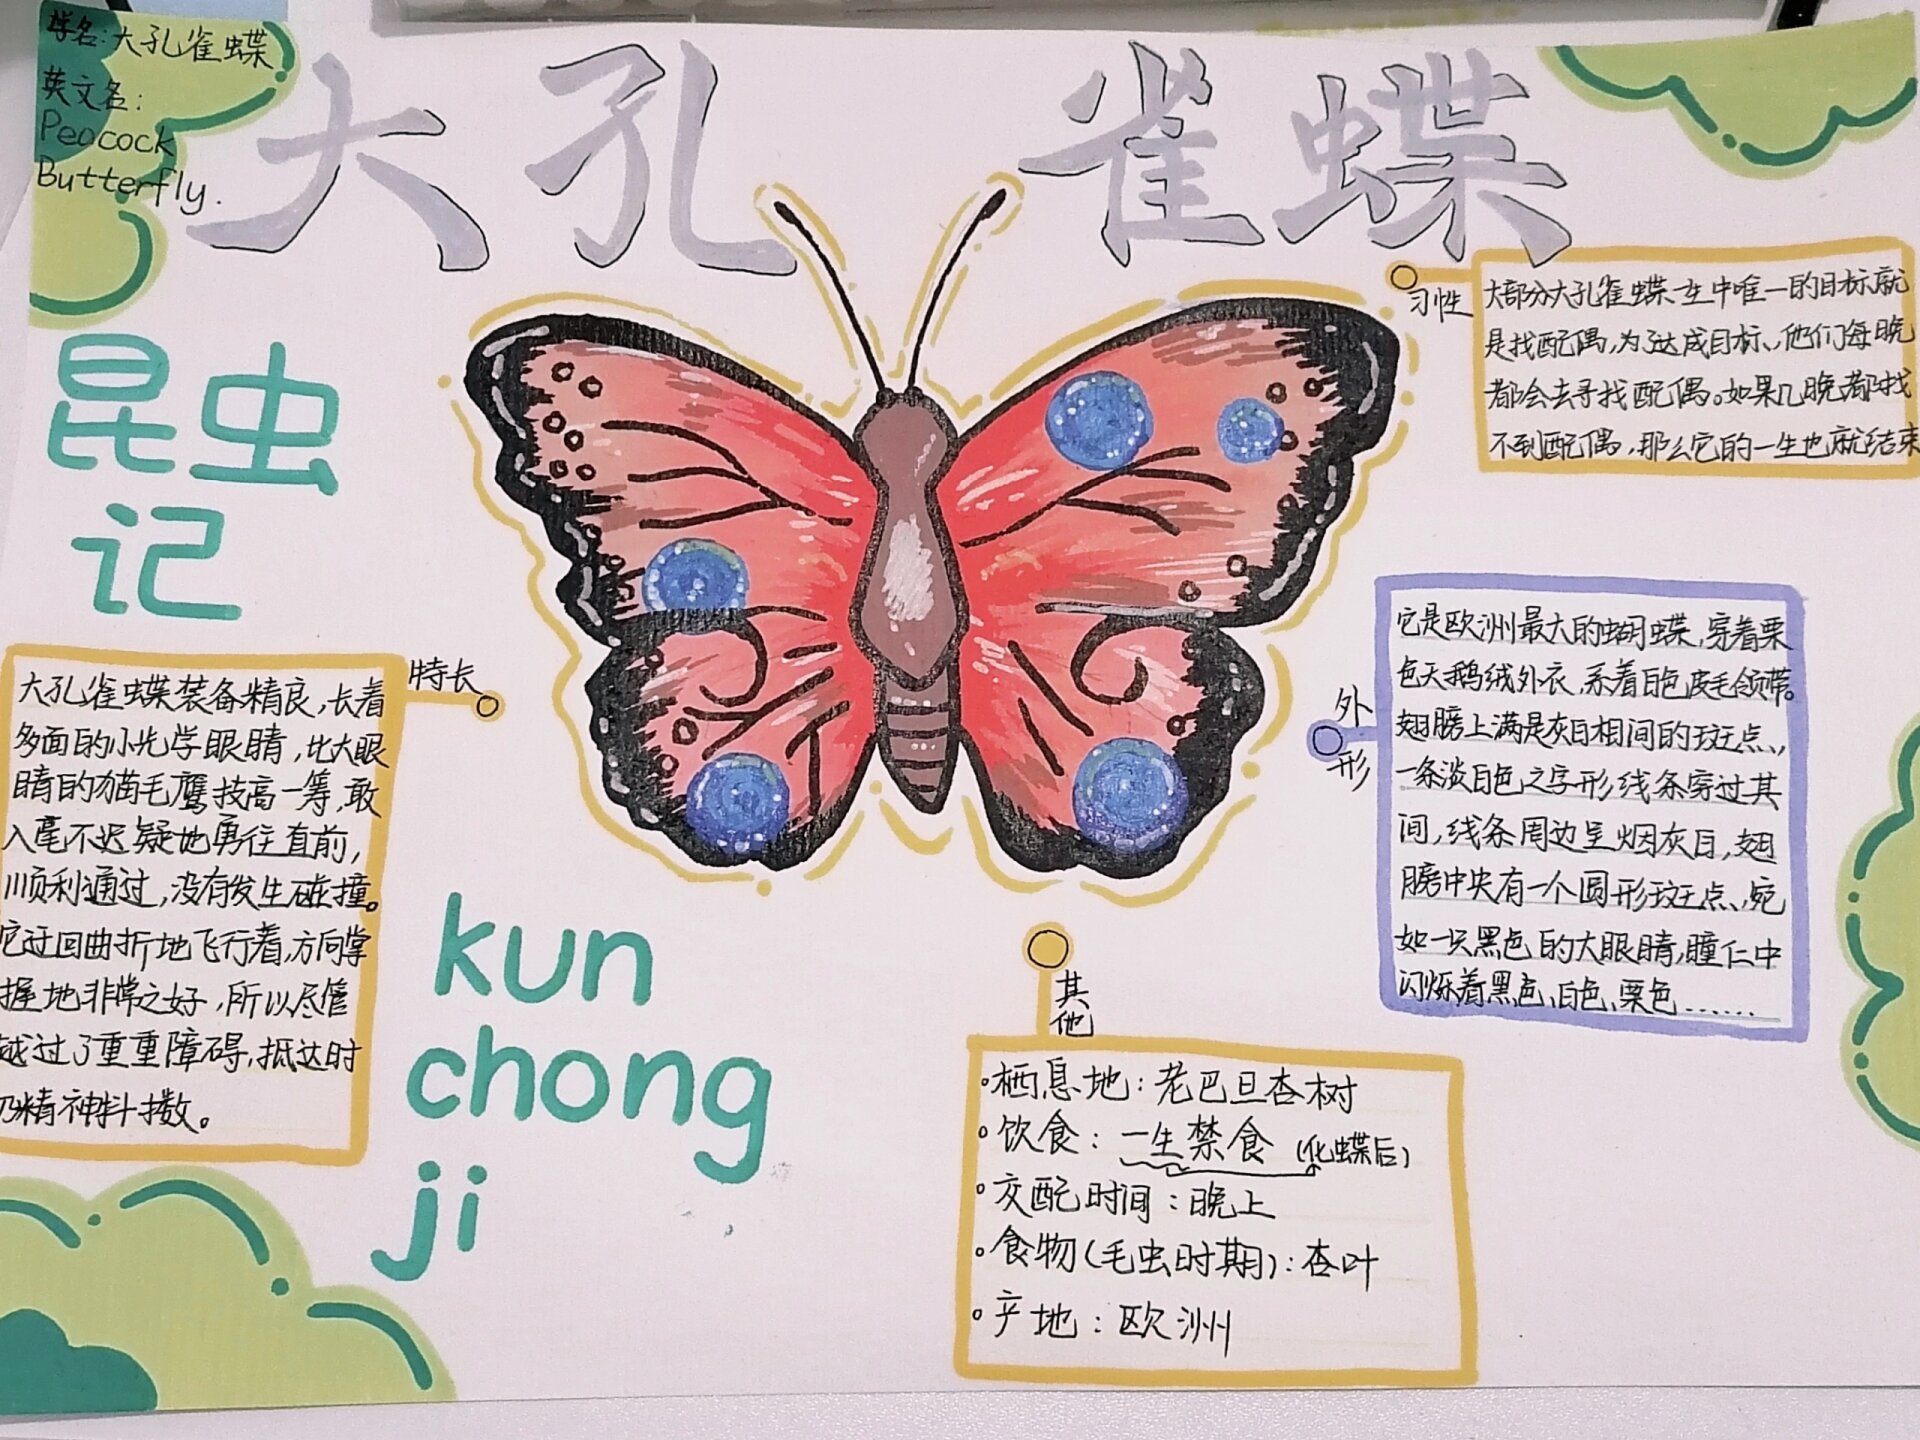 学名:大孔雀蝶
英文名:
Peacock
Butterfly.
大孔雀蝶
昆虫
记
kun
chong
ji
习性
大部分大孔雀蝶一生中唯一的目标就
是找配偶,为了达成目标,他们每晚
都会去寻找配偶。如果几晚都找
不到配偶,那么它的一生也就结束
特长
大孔雀蝶装备精良,长着
多面的小光学眼睛,比大眼
睛的猫毛鹰技高一筹,敢
入毫不迟疑地勇往直前,
顺利通过,没有发生碰撞。
它迂回曲折地飞行着,方向掌
握地非常之好,所以尽管
越过了重重障碍,抵达时
仍精神抖擞。
外形
它是欧洲最大的蝴蝶,穿着栗
色天鹅绒外衣,系着白色皮毛领带。
翅膀上满是灰白相间的斑点,
一条淡白色之字形线条穿过其
间,线条周边呈烟灰白,翅
膀中央有一个圆形斑点,宛
如一只黑色的大眼睛,瞳仁中
闪烁着黑色、白色、栗色……
其他
栖息地:老巴旦杏树
饮食:一生禁食(化蝶后)
交配时间:晚上
食物(毛虫时期):杏叶
产地:欧洲